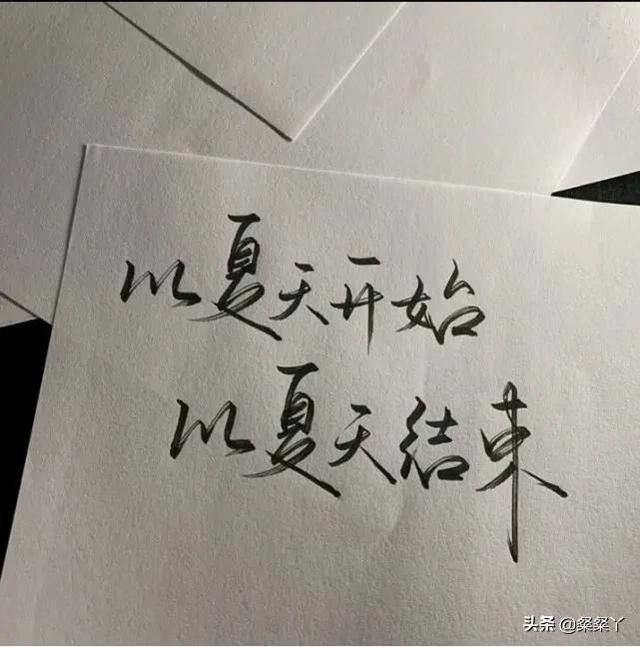 以夏天开始
以夏天结束
头条 @粲粲丫